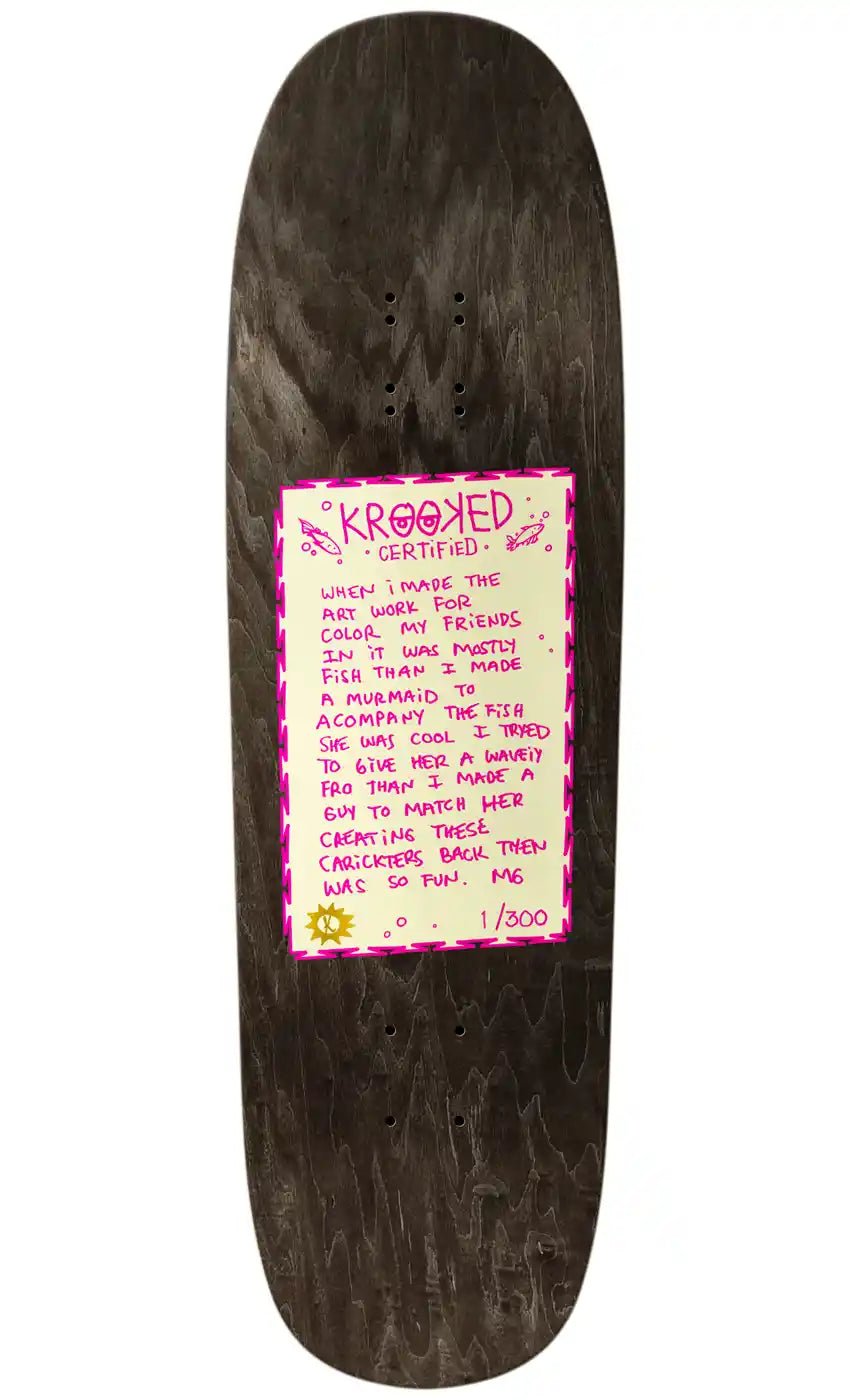 KROOKED
· CERTiFiED ·
WHEN i MADE THE
ART WORK FOR
COLOR MY FRiENDS
IN iT WAS MOSTLY
FiSH THAN I MADE
A MURMAiD TO
ACOMPANY THE FiSH
SHE WAS COOL I TRYED
TO GiVE HER A WAVEiY
FRO THAN I MADE A
GUY TO MATCH HER
CREATiNG THESE
CARiCKTERS BACK THEN
WAS SO FUN. MG
K
1/300